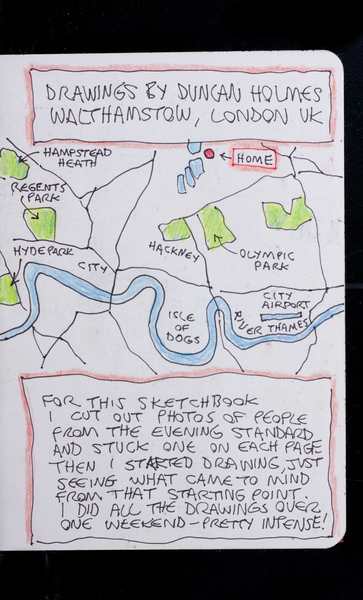 DRAWINGS BY DUNCAN HOLMES
WALTHAMSTOW, LONDON UK
HAMPSTEAD
HEATH
HOME
REGENTS
PARK
HYDEPARK
CITY
HACKNEY
OLYMPIC
PARK
ISLE
OF
DOGS
CITY
AIRPORT
RIVER THAMES
FOR THIS SKETCHBOOK
I CUT OUT PHOTOS OF PEOPLE
FROM THE EVENING STANDARD
AND STUCK ONE ON EACH PAGE
THEN I STARTED DRAWING, JUST
SEEING WHAT CAME TO MIND
FROM THAT STARTING POINT.
I DID ALL THE DRAWINGS OVER
ONE WEEKEND – PRETTY INTENSE!